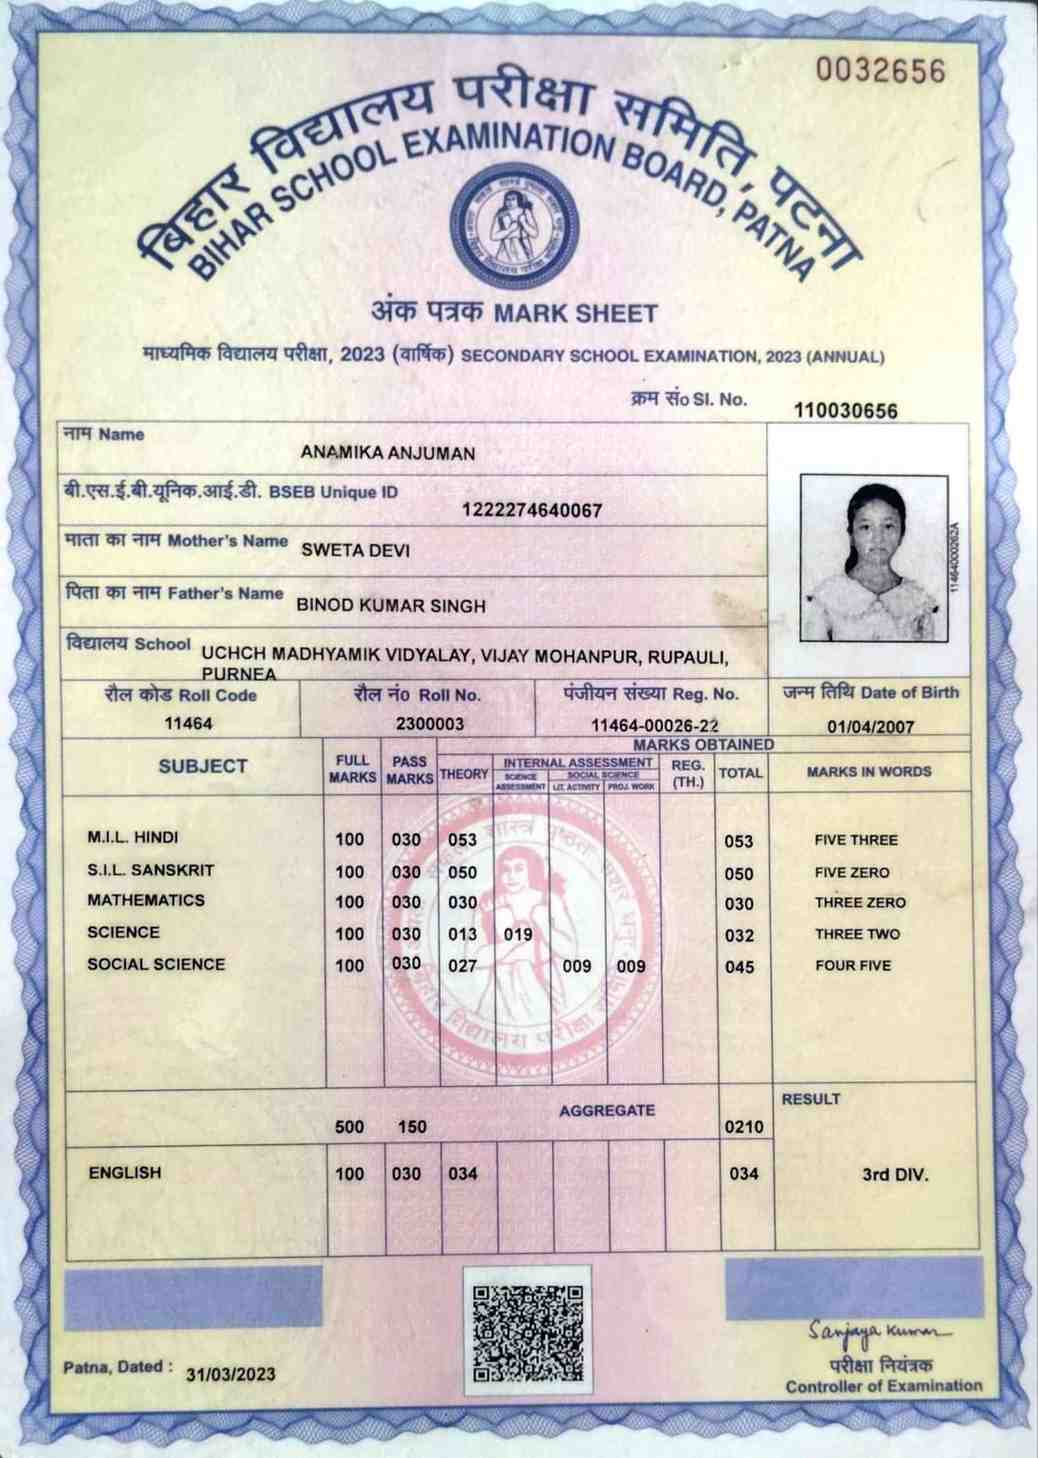 0032656
बिहार विद्यालय परीक्षा समिति, पटना
BIHAR SCHOOL EXAMINATION BOARD, PATNA
अंक पत्रक MARK SHEET
माध्यमिक विद्यालय परीक्षा, 2023 (वार्षिक) SECONDARY SCHOOL EXAMINATION, 2023 (ANNUAL)
क्रम सं० Sl. No. 110030656
नाम Name ANAMIKA ANJUMAN
बी.एस.ई.बी.यूनिक.आई.डी. BSEB Unique ID 1222274640067
माता का नाम Mother's Name SWETA DEVI
पिता का नाम Father's Name BINOD KUMAR SINGH
11464000262A
विद्यालय School UCHCH MADHYAMIK VIDYALAY, VIJAY MOHANPUR, RUPAULI,
PURNEA
रौल कोड Roll Code रौल नं० Roll No. पंजीयन संख्या Reg. No. जन्म तिथि Date of Birth
11464 2300003 11464-00026-22 01/04/2007
MARKS OBTAINED
SUBJECT FULL MARKS PASS MARKS THEORY INTERNAL ASSESSMENT REG. (TH.) TOTAL MARKS IN WORDS
SCIENCE ASSESSMENT SOCIAL SCIENCE
LIT. ACTIVITY PROJ. WORK
M.I.L. HINDI 100 030 053 053 FIVE THREE
S.I.L. SANSKRIT 100 030 050 050 FIVE ZERO
MATHEMATICS 100 030 030 030 THREE ZERO
SCIENCE 100 030 013 019 032 THREE TWO
SOCIAL SCIENCE 100 030 027 009 009 045 FOUR FIVE
AGGREGATE RESULT
500 150 0210
ENGLISH 100 030 034 034 3rd DIV.
Sanjaya Kumar
Patna, Dated : 31/03/2023
परीक्षा नियंत्रक
Controller of Examination